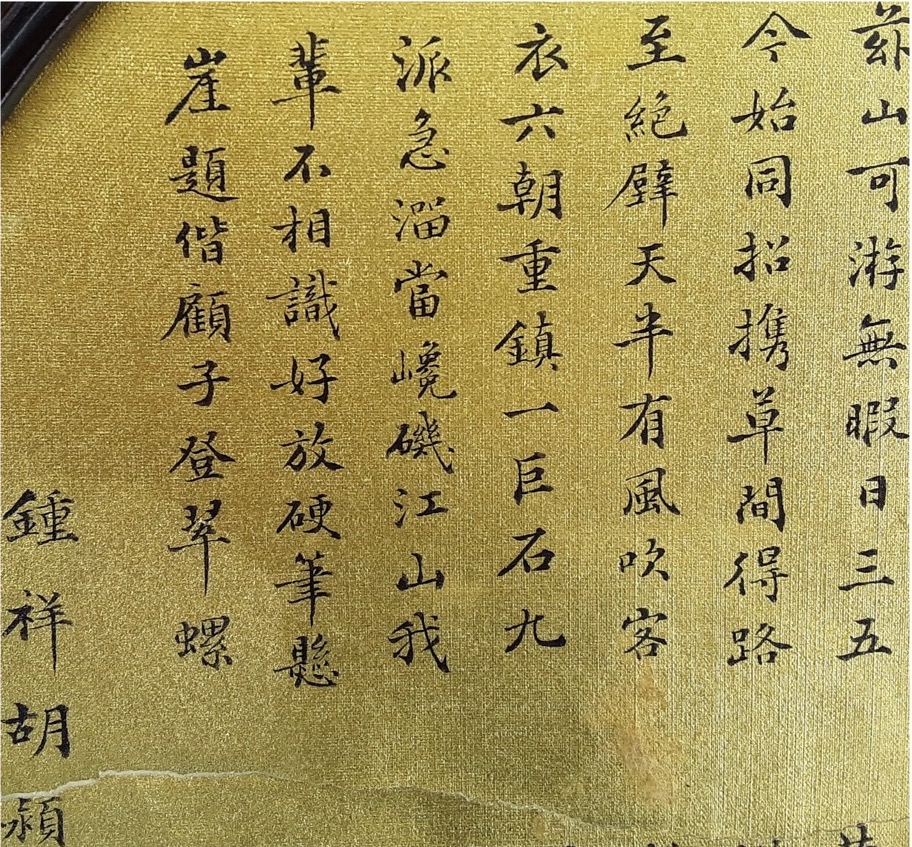 茲山可游無暇日三五
今始同招携草間得路
至絕壁天半有風吹客
衣六朝重鎮一巨石九
派急溜當巉磯江山我
輩不相識好放硬筆懸
崖題偕顧子登翠螺
鍾祥胡潁